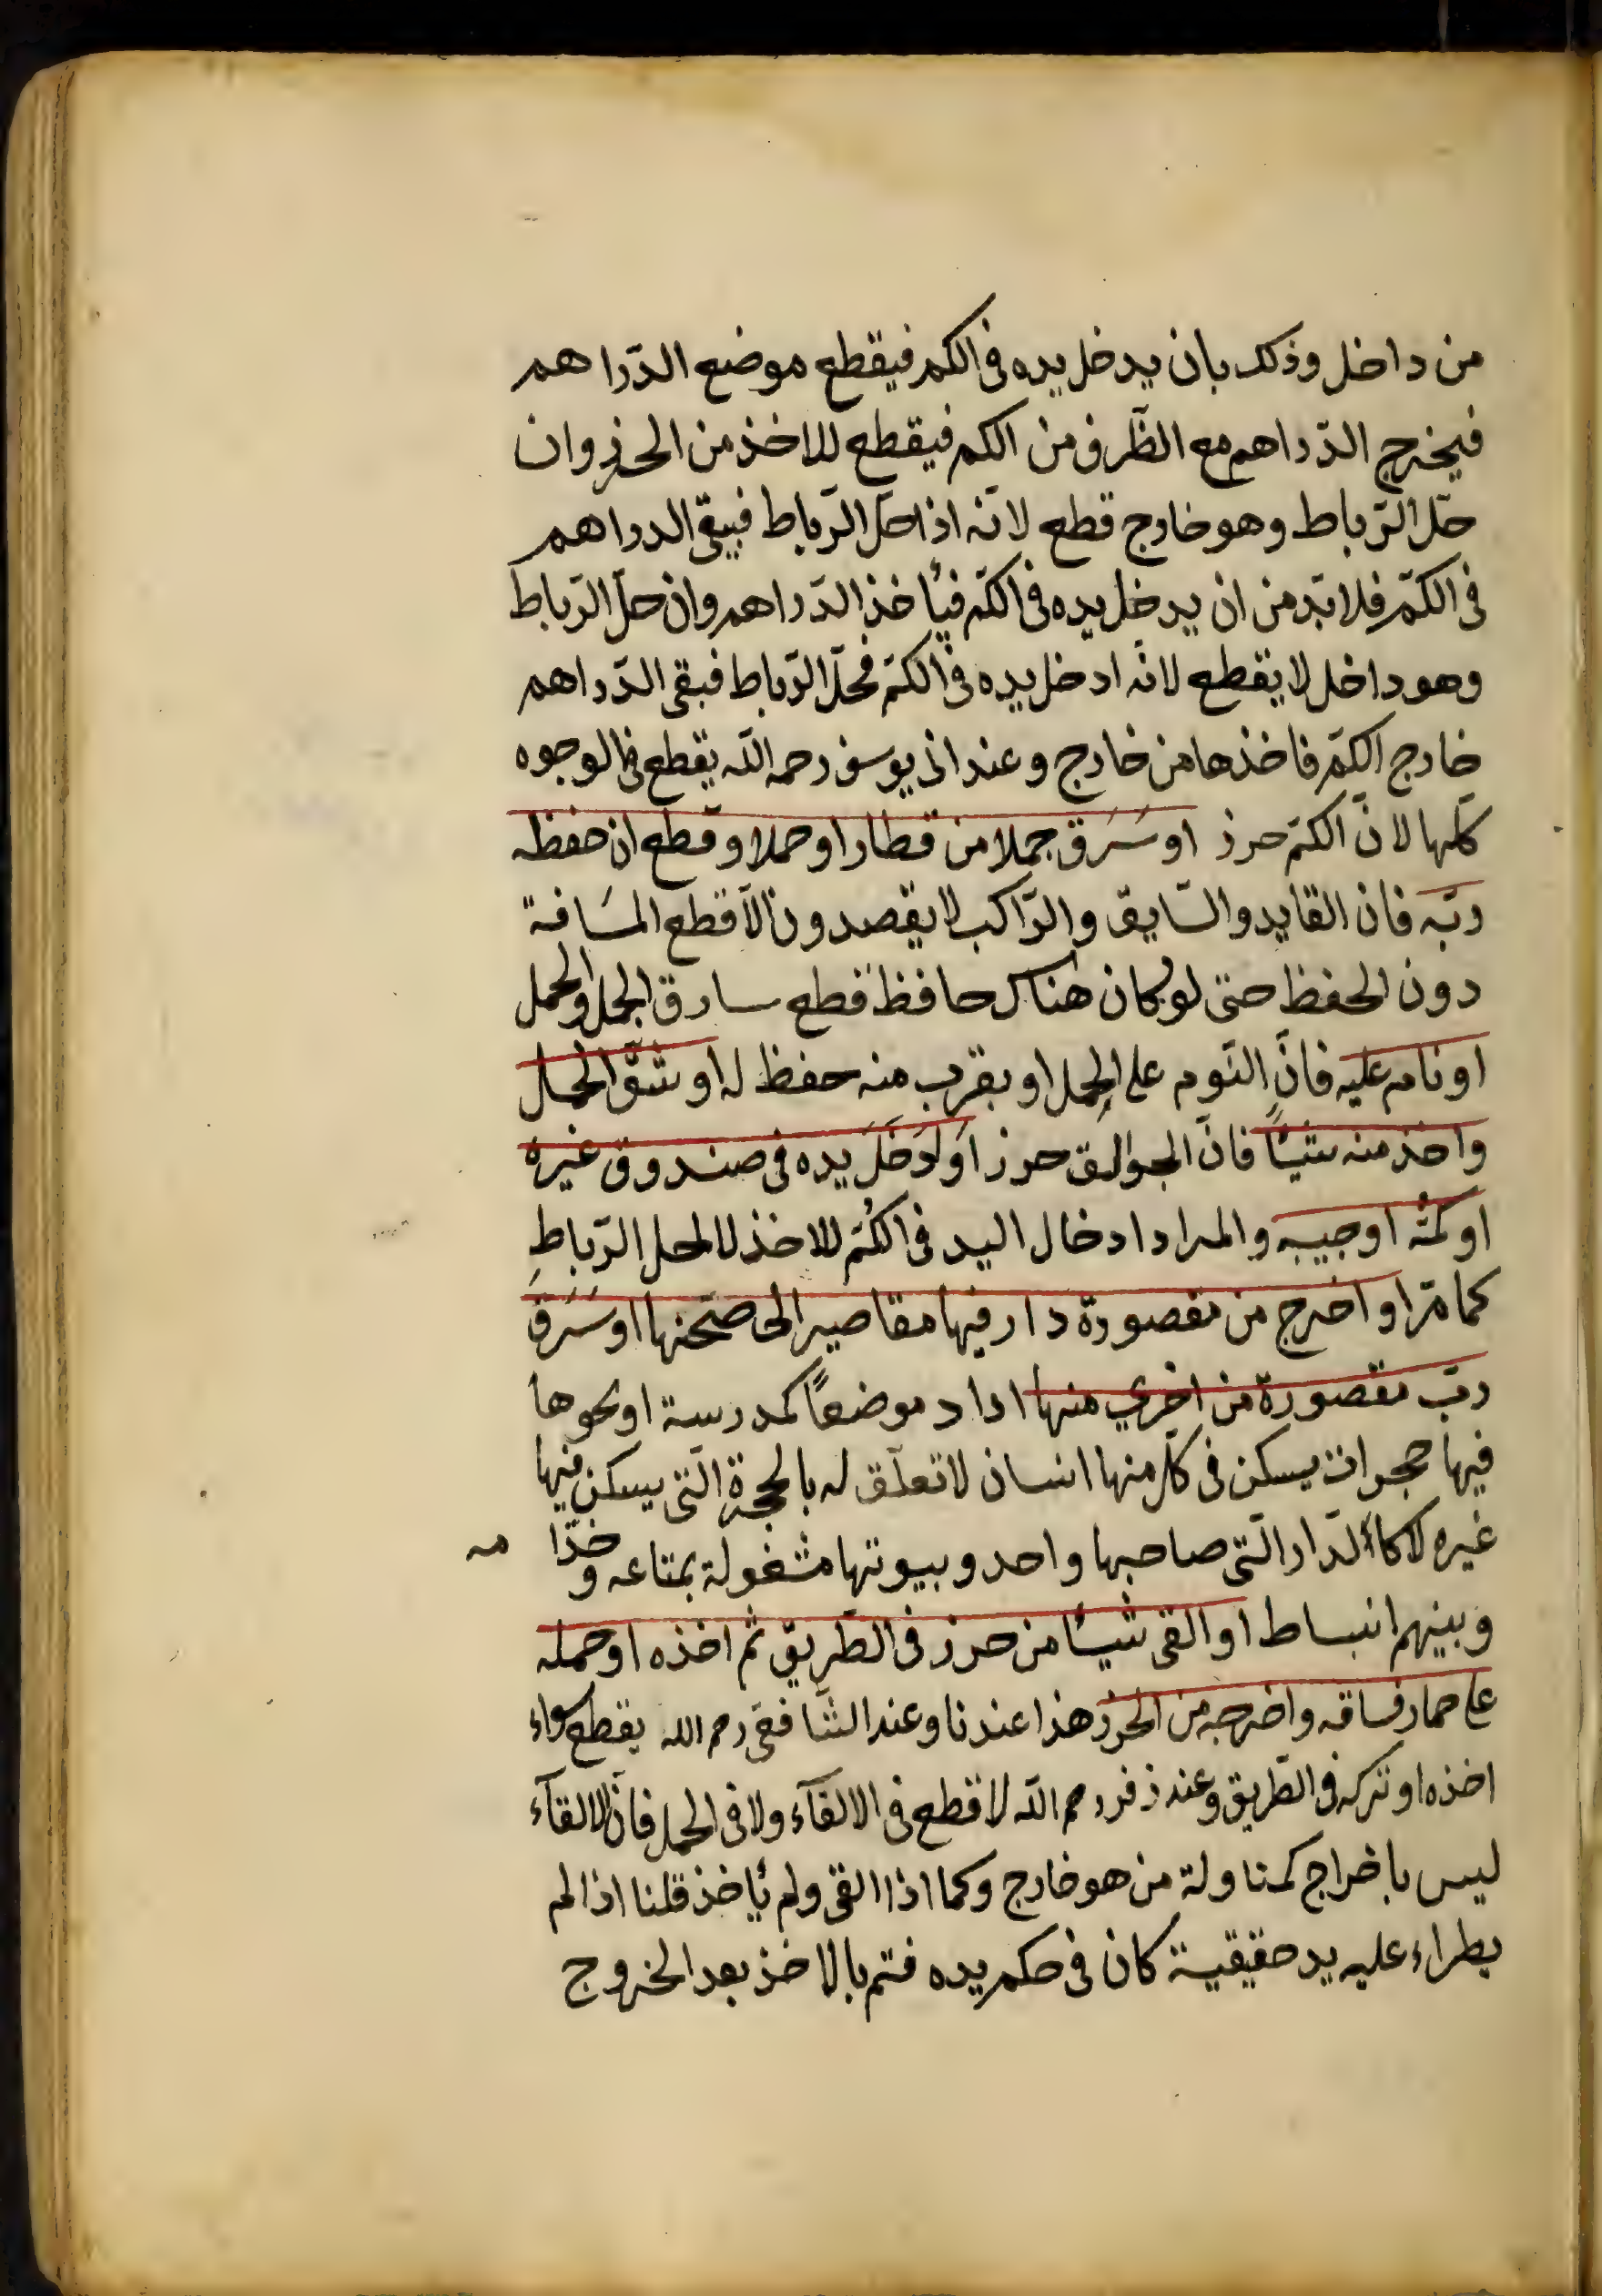 من داخل وذلك بان يدخل يده فى الكم فيقطع موضع الدّراهم
فيخرج الدّراهم مع الظّرف من الكم فيقطع للاخذ من الحرز وان
حلّ الرّباط وهو خارج قطع لانّه اذا حلّ الرّباط فيبقى الدراهم
فى الكمّ فلا بدّ من ان يدخل يده فى الكمّ فيأخذ الدّراهم وان حلّ الرّباط
وهو داخل لا يقطع لانّه ادخل يده فى الكمّ فحلّ الرّباط فبقى الدّراهم
خارج الكمّ فاخذها من خارج وعند ابى يوسف رحمه اللّه يقطع فى الوجوه
كلّها لانّ الكمّ حرز او سَرَق جملا من قطار او حملا وقطع ان حفظه
ربّه فان القايد والسّايق والرّاكب لا يقصدون الّا قطع المسَافة
دون الحفظ حتى لو كان هناك حافظ قطع سارق الجمل والحمل
او نام عليه فانّ النّوم على الحِمل او بقرب منه حفظ له او شقّ الحمل
واخذ منه شيئًا فانّ الجوالق حرز اَو اَدخَلَ يده فى صندوق غيره
او كمّه او جيبه والمراد ادخال اليد فى الكُمّ للاخذ لا لحل الرّباطِ
كما مرّ او اخرج من مقصورة دار فيها مقاصير الى صحنها او سَرَقَ
ربّ مقصورة من اخرى منها اراد موضعًا كمدرسة او نحوها
فيها حجرات يسكن فى كلّ منها انسان لا تعلّق له بالحجرة الّتى يسكن فيها
غيره لا كالدّار الّتى صاحبها واحد وبيوتها مشغولة بمتاعه وخدّامه
وبينهم انبساط او القى شيئًا من حرز فى الطّريق ثم اخذه او حمله
على حمار فساقه واخرجه من الحرز هذا عندنا وعند الشّافعى رحمه الله يقطع سواء
اخذه او تركه فى الطّريق وعند زفر رحمه اللّه لا قطع فى الالقآء ولا فى الحمل فانّ الالقآء
ليس باخراج كمناولة من هو خارج وكما اذا القى ولم يأخذ قلنا اذا لم
يطراء عليه يد حقيقية كان فى حكم يده فتم بالاخذ بعد الخروج